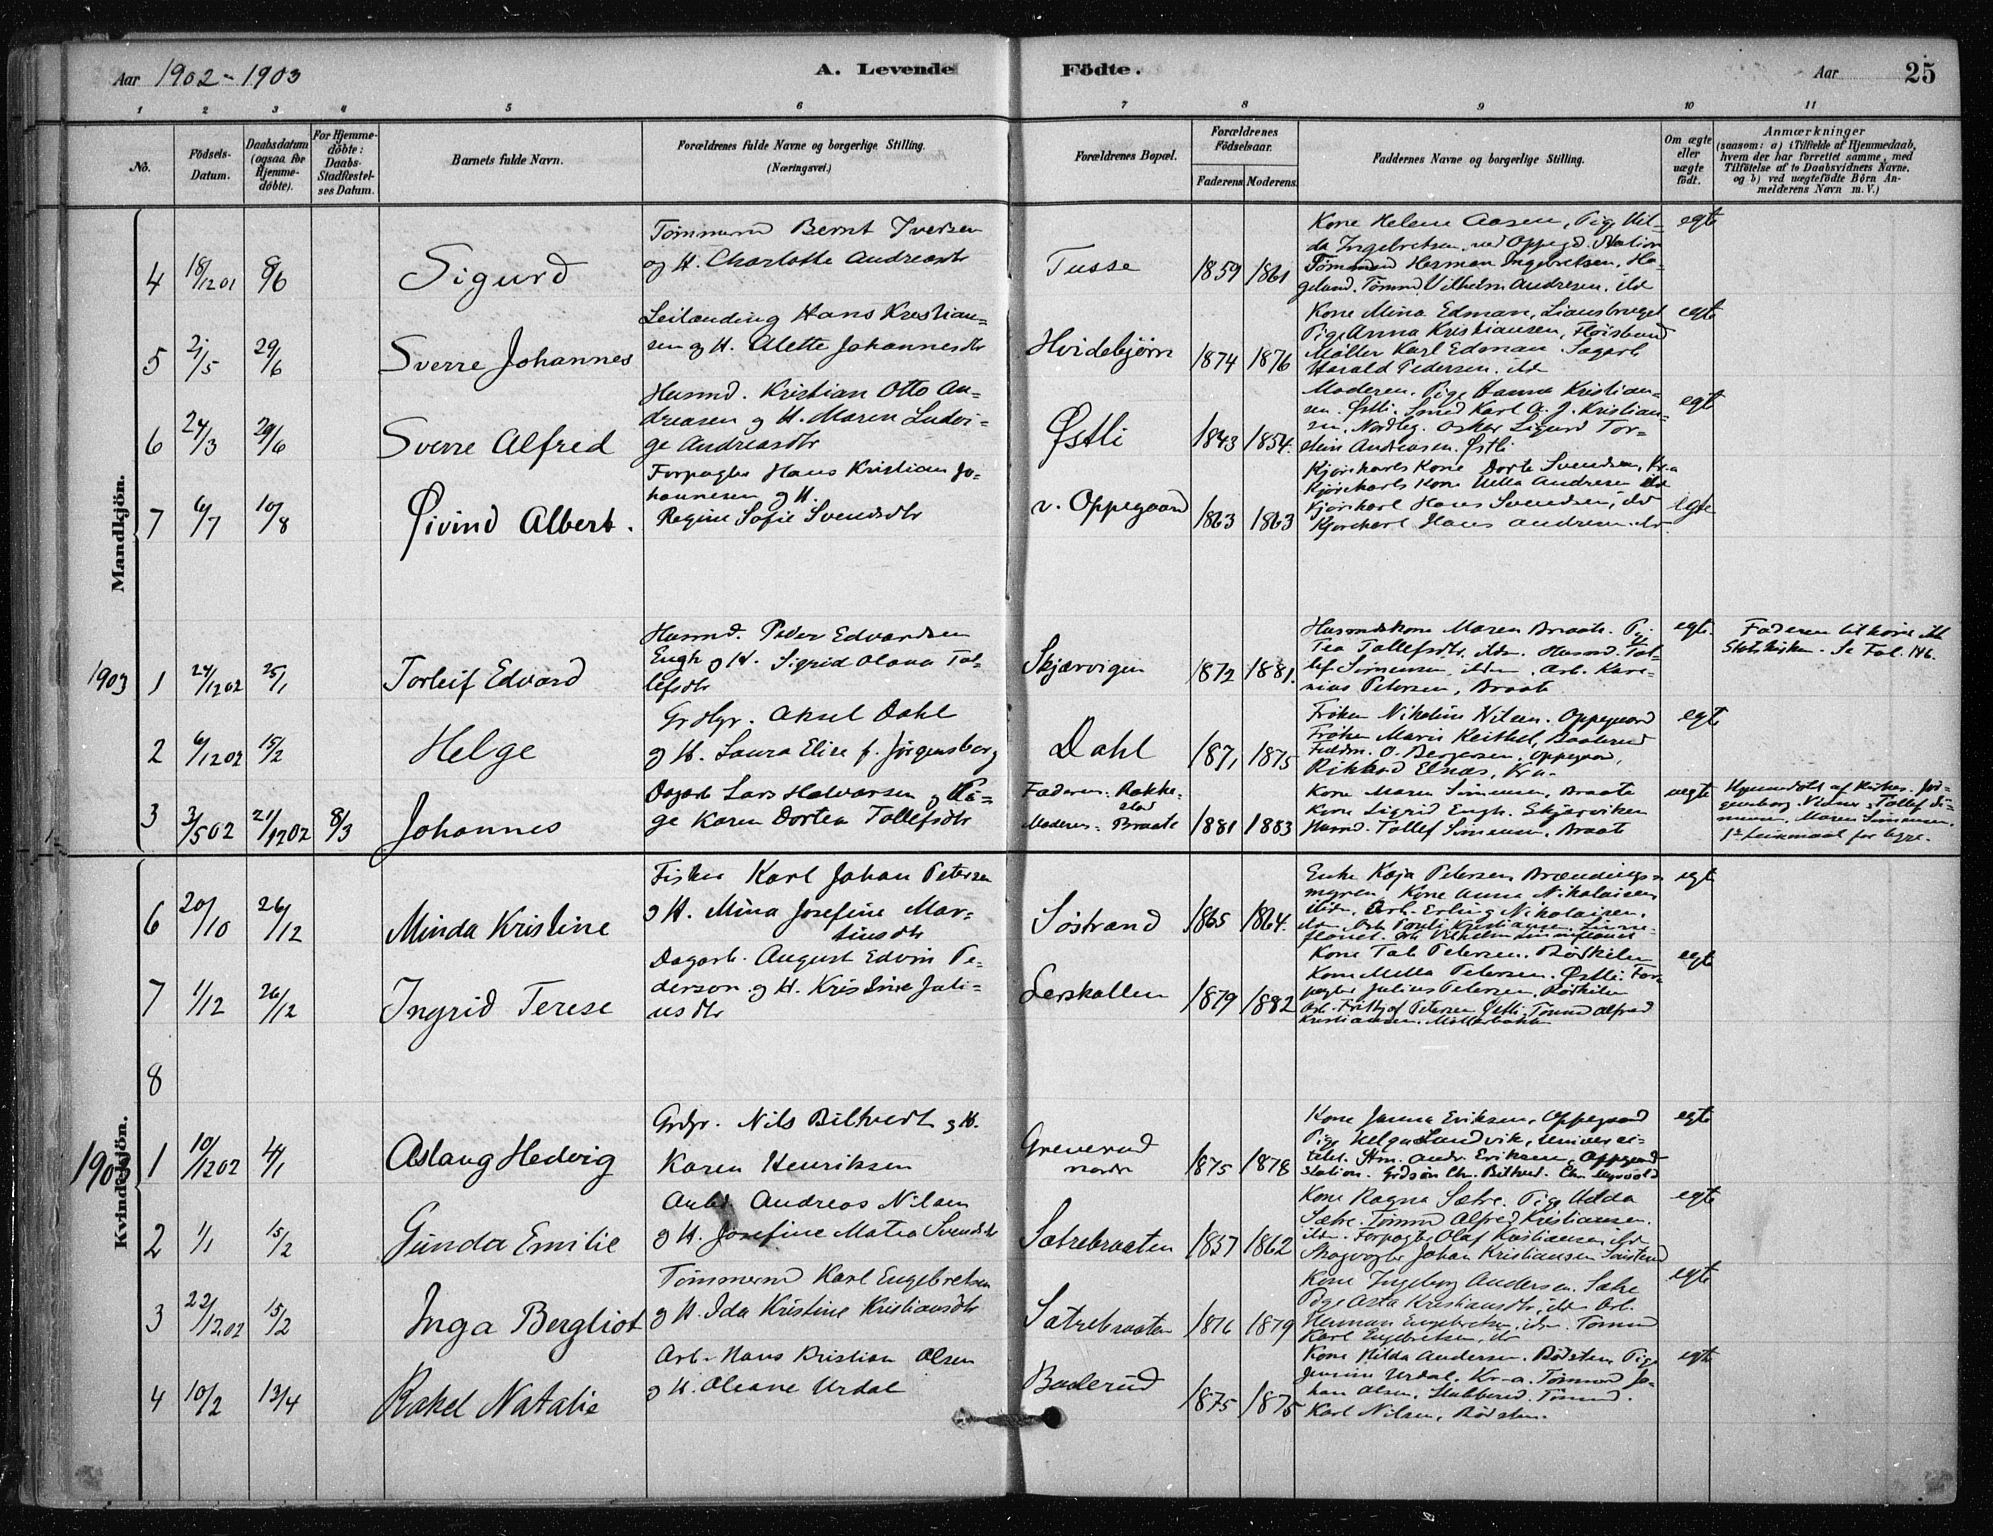 Aar 1902-1903
A. Levende Födte.
Aar 25
1 2 3 4 5 6 7 8 9 10 11
No.
Födsels-Datum.
Daabsdatum (ogsaa for Hjemme-döbte).
For Hjemme-döbte: Daabs-Stadfæstel-ses Datum.
Barnets fulde Navn.
Forældrenes fulde Navne og borgerlige Stilling. (Næringsvei.)
Forældrenes Bopæl.
Forældrenes Födselsaar.
Faderens. Moderens.
Faddernes Navne og borgerlige Stilling.
Om ægte eller uægte födt.
Anmærkninger
(saasom: a) i Tilfælde af Hjemmedaab, hvem der har forrettet samme, med Tilföielse af to Daabsvidners Navne, og b) ved uægtefödte Börn An-melderens Navn m. V.)
Mandkjön.
4 18/12 01 8/6 Sigurd
Tömmermd Bernt Iversen
og H. Charlotte Andreasdtr
Tusse 1859 1861
Kone Helene Aasen, Pige Hil-
da Ingebretsen, ved Oppegd. Station
Tömmermd Herman Ingebretsen, Ha-
gelund. Tömmd Vilhelm Andresen, ibd
egte
5 2/5 29/6 Sverre Johannes
Leilænding Hans Kristian-
sen og H. Alette Johannesdtr
Hvidebjørn 1874 1876
Kone Mina Edman, Liansbruget
Pige Anna Kristiansen, Fløisbund
Møller Karl Edman Sagarb
Harald Pedersen. ibd
egte
6 24/3 29/6 Sverre Alfred
Husmd. Kristian Otto An-
dreasen og H. Maren Ludvi-
ge Andreasdtr
Østli 1843 1854
Moderen. Pige Hanna Kristian-
sen. Østli. Smed Karl A. J. Kristian-
sen, Oskar Sigurd Tor-
stein Andreasen. Østli
egte
7 6/7 10/8 Øivind Albert.
Forpagter Hans Kristian Jo-
hannesen og H.
Regine Sofie Svendsdtr
v. Oppegaard 1863 1863
Kjørekarls Kone Dorte Svendsen, Kr.a
Kjørekarls Kone Andresen ibd
Kjørekarl Hans Svendsen, ibd
Kjørekarl Hans Andresen ibd.
egte
1903
1 24/12 02 25/1 Torleif Edvard
Husmd. Peder Edvardsen
Engh og H. Sigrid Olava Tol-
lefsdtr
Skjærvigen 1872 1881.
Husmdskone Maren Braate. Pige
Tea Tollefsdtr. ibdm. Husmd. Tol-
lef Simensen, ibdm. Arb. Kare-
nius Petersen, Braate
egte.
Faderen tilhører ikke
Statskirken. Se Fol. 146.
2 6/12 02 15/2 Helge
Grdbgr. Aksel Dahl
og H. Laura Elise f. Jørgensborg
Dahl 1871 1875
Frøken Nikoline Nilsen. Oppegaard
Frøken Marie Keithel, Baalerud
Fuldm. O. Bergersen, Oppegaard,
Rikhard Elnæs, Kr.a.
egte
3 3/5 02 21/12 02 8/3 Johannes
Dagarb Lars Halvorsen og Pi-
ge Karen Dortea Tollefsdtr
Faderen: Rakke-
stad
Moderen: Braate 1881 1883
Kone Maren Simensen, Braate
Kone Sigrid Engh. Skjærviken
Husmd. Tollef Simensen, Braate
uegte
Hjemmedøbt af Jør-
Tollef Si-
mensen, Maren Simensen.
1ste Leiermaal for begge.
Kvindekjön.
6 20/10 26/12 Minda Kristine
Fisker Karl Johan Petersen
og H. Mina Josefine Mar-
tinsdtr
Søstrand 1865 1864
Enke Kaja Petersen Brændings-
myren, Kone Anna Nikolaisen
ibdm, Arb. Erling Nikolaisen,
egte
7 1/12 26/12 Ingrid Terese
Dagarb. August Edvin Pe-
derson og H. Kristine Juli-
usdtr
Lerskallen 1879 1882
Kone Petersen. Rødkilen
Kone Milla Petersen. Østli. For-
pagter Julius Petersen, Rødkilen
Arb. Fritjof Petersen Østli. Tømmd Alfred
Kristiansen. Møllerbakken
egte
8
1903
1 10/12 02 4/1 Aslaug Hedvig
Grdbr. Nils Biltvedt og H.
Karen Henriksen
Greverud
nordr 1875 1878
Kone Janna Eriksen, Oppegaard
Pige Helga Sandvik, Universi-
tetet. Stm. Andr. Eriksen, Oppegaard
Station. Grdsøn Chr. Biltvedt.
egte
2 1/1 15/2 Gunda Emilie
Arbd. Andreas Nilsen
og H. Josefine Matea Svendsdtr
Sætrebraaten 1857 1862
Kone Ragna Sætre. Pige Hilda
Sætre. Tømmd Alfred Kristiansen.
ibdm. Forpagter Olaf Kristiansen ibd
Skogvogter Johan Kristiansen
egte
3 22/12 02 15/2 Inga Bergliot
Tømmermd Karl Engebretsen
og H. Ida Kristine Kristiansdtr
Sætrebraaten 1876 1879
Kone Ingeborg Andersen. Sætre
Pige Asta Kristiansdtr, ibd. Arb.
Herman Engebretsen, ibdm. Tømmd
Karl Engebretsen, ibd
egte
4 10/2 13/4 Rakel Natalie
Arb. Hans Kristian Olsen
og H. Oleane Urdal
Baalerud 1875 1875
Kone Hilda Andersen. Rødsten Pige
Urdal. Kr-a. Tømmd Jo-
han Olsen, Stubberud. Tømmd.
Karl Nilsen, Rødsten.
egte